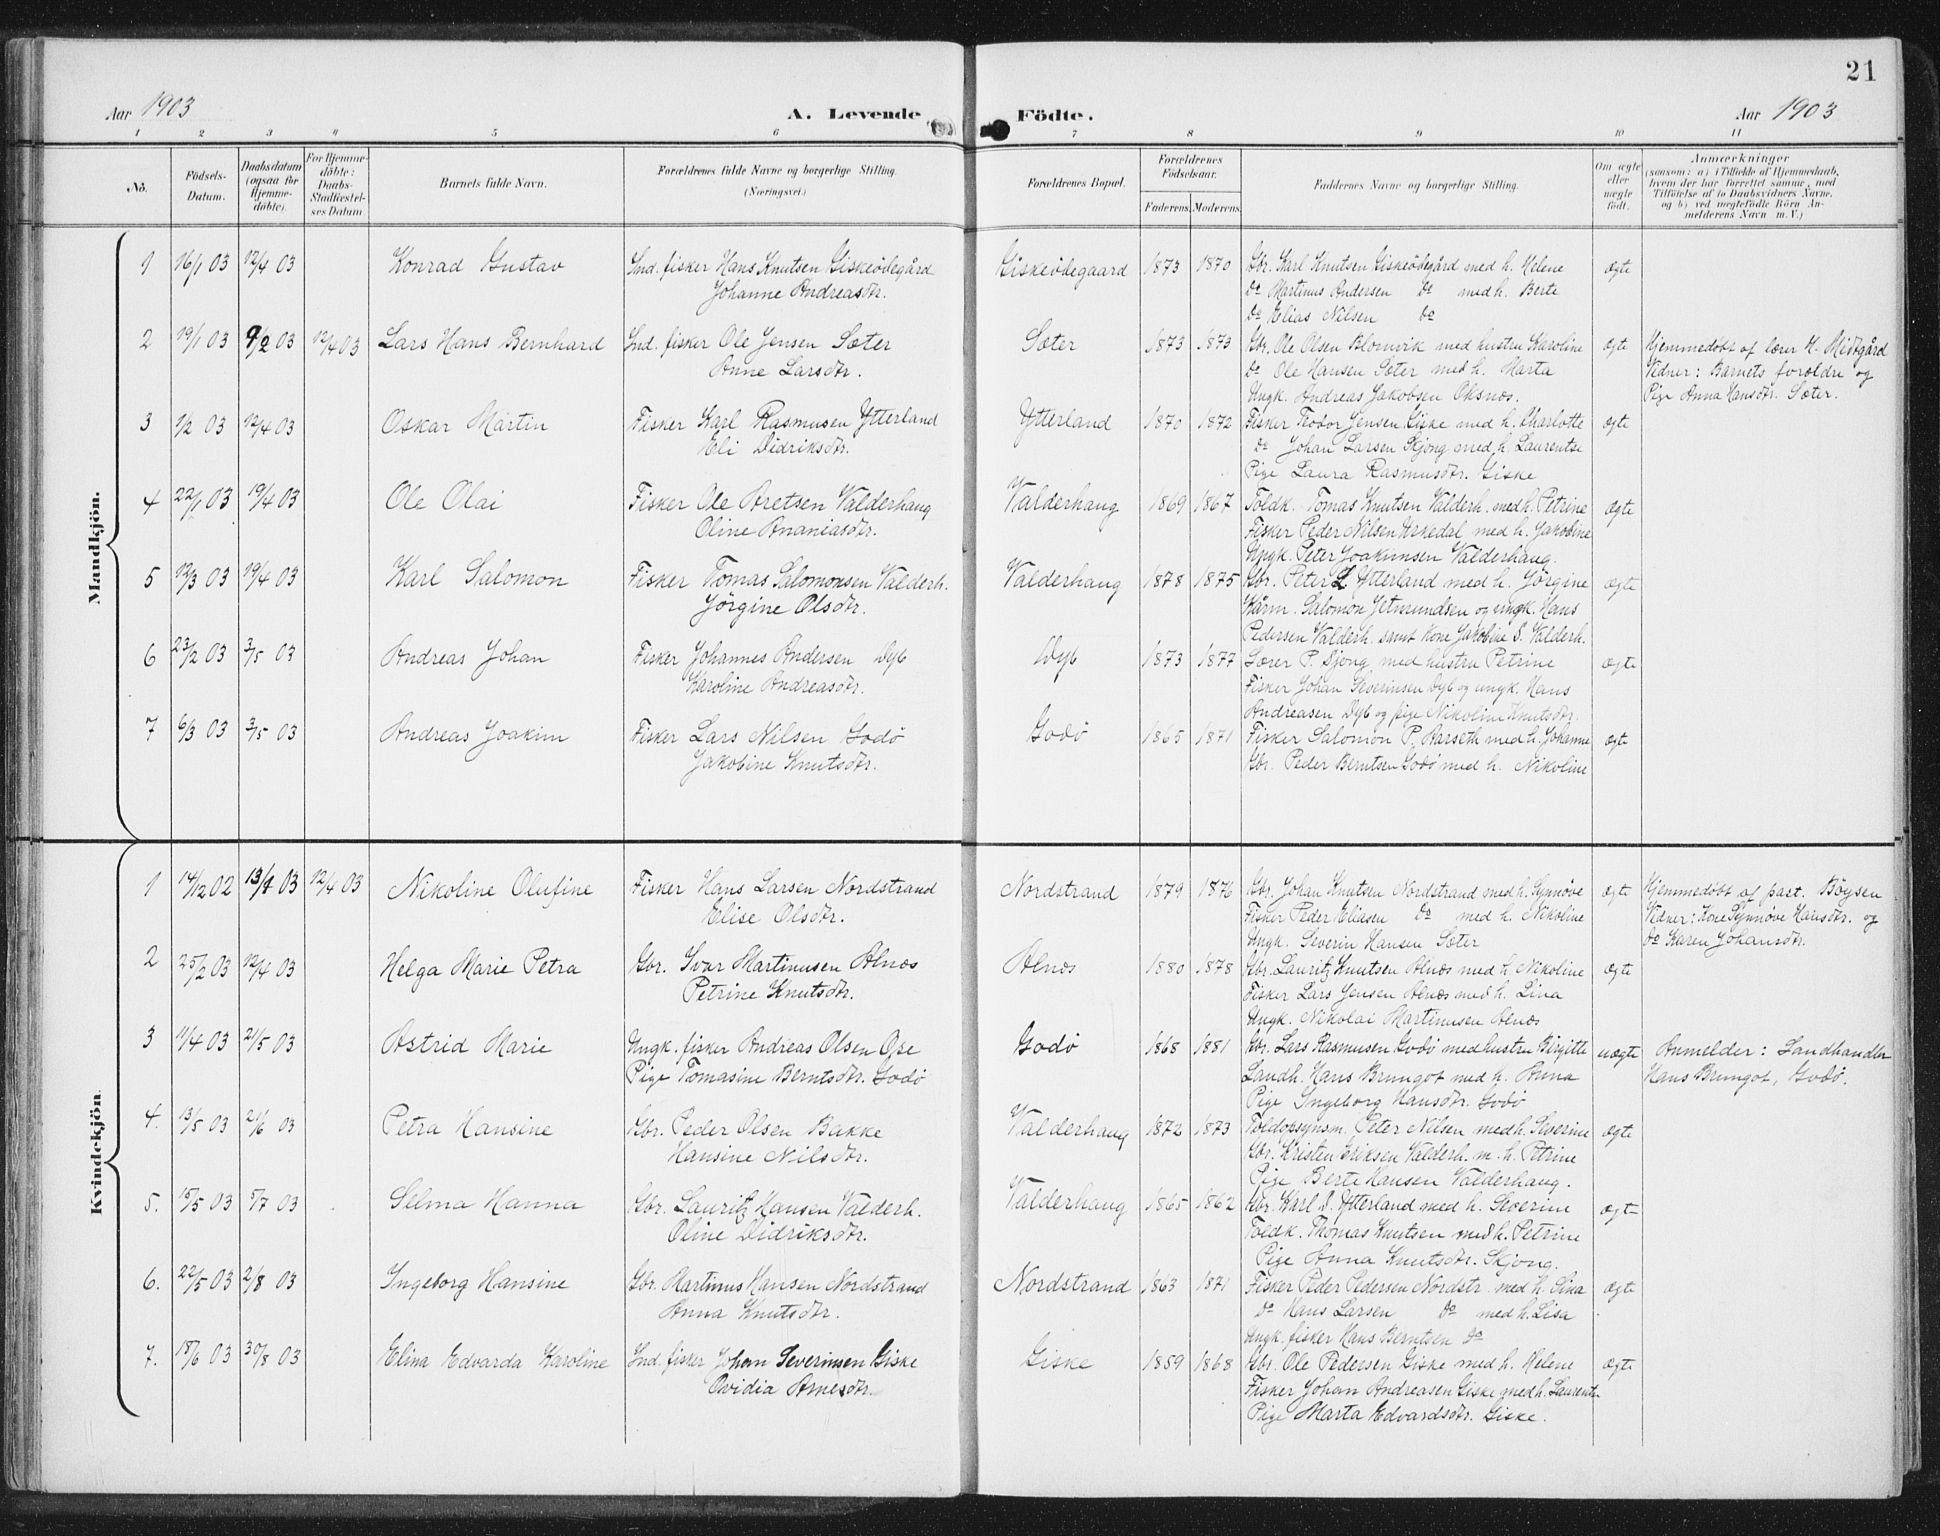 21
Aar 1903 A. Levende Födte. Aar 1903
1 2 3 4 5 6 7 8 9 10 11
No. Födsels-Datum. Daabsdatum (ogsaa for Hjemme-döbte). For Hjemme-döbte: Daabs-Stadfæstel-ses Datum Barnets fulde Navn. Forældrenes fulde Navne og borgerlige Stilling. (Næringsvei.) Forældrenes Bopæl. Forældrenes Födselsaar. Faderens Moderens Faddernes Navne og borgerlige Stilling. Om ægte eller uægte födt. Anmærkninger (saasom: a) i Tilfælde af Hjemmedaab, hvem der har forrettet samme, med Tilföielse af to Daabsvidners Navne, og b) ved uægtefödte Börn An-melderens Navn m. V.)
Mandkjön.
1 16/1 03 12/4 03 Konrad Gustav Ind. fisker Hans Knutsen Giskeödegård Giskeödegaard 1873 1870 Gbr. Karl Knutsen Giskeödegård med h. Helene ægte
Johanne Andreasdtr. Do Martinus Andersen Do med h. Berte
Do Elias Nilsen Do
2 19/1 03 9/2 03 12/4 03 Lars Hans Bernhard Ind. fisker Ole Jensen Sæter Sæter 1873 1873 Gbr. Ole Olsen Blomvik med hustru Karoline ægte Hjemmedöbt af lærer H. Midtgård
Anne Larsdtr. Do Ole Hansen Sæter med h. Marta Vidner: Barnets forældre og
Ungk. Andreas Jakobsen Oksnes. Pige Anna Hansdtr. Sæter.
3 1/2 03 12/4 03 Oskar Martin Fisker Karl Rasmusen Ytterland Ytterland 1870 1872 Fisker Teodor Jensen Giske med h. Charlotte ægte
Eli Didriksdtr. Do Johan Larsen Skjong med h. Laurentse
Pige Laura Rasmusdtr. Giske
4 22/1 03 19/4 03 Ole Olai Fisker Ole Aretsen Valderhaug Valderhaug 1869 1867 Toldk. Tomas Knutsen Valderh. med h. Petrine ægte
Oline Ananiasdtr. Fisker Peder Nilsen Urkedal med h. Jakobine
Ungk. Peter Joakimsen Valderhaug.
5 12/3 03 19/4 03 Karl Salomon Fisker Tomas Salomonsen Valderh. Valderhaug 1878 1875 Gbr. Peter L Ytterland med h. Jörgine ægte
Jörgine Olsdtr. Kårm. Salomon Jetmundsen og ungk. Hans
Pedersen Valderh. samt Kone Jakobine S. Valderh.
6 23/2 03 3/5 03 Andreas Johan Fisker Johannes Andersen Dyb Dyb 1873 1877 Lærer P. Djong med hustru Petrine ægte
Karoline Andreasdtr. Fisker Johan Severinsen Dyb og ungk. Hans
Andreasen Dyb og pige Nikoline Knutsdtr.
7 6/3 03 3/5 03 Andreas Joakim Fisker Lars Nilsen Godö Godö 1865 1871 Fisker Salomon P. Aarseth med h. Johanne ægte
Jakobine Knutsdtr. Gbr. Peder Berntsen Godö med h. Nikoline
Kvindekjön.
1 14/12 02 13/1 03 12/4 03 Nikoline Olufine Fisker Hans Larsen Nordstrand Nordstrand 1879 1876 Gbr. Johan Knutsen Nordstrand med h. Synnöve ægte Hjemmedöbt af past. Böysen
Elise Olsdtr. Fisker Peder Eliasen Do med h. Nikoline Vidner: Kone Synnöve Hansdtr. og
Ungk. Severin Hansen Sæter Do Karen Johansdtr.
2 25/2 03 12/4 03 Helga Marie Petra Gbr. Ivar Martinusen Alnæs Alnæs 1880 1878 Gbr. Lauritz Knutsen Alnæs med h. Nikoline ægte
Petrine Knutsdtr. Fisker Lars Jensen Alnæs med h. Lina
Ungk. Nikolai Martinusen Alnæs
3 11/4 03 21/5 03 Astrid Marie Ungk. fisker Andreas Olsen Ose Godö 1868 1881 Gbr. Lars Rasmusen Godö med hustru Birgitte uægte Anmelder: Landhandler
Pige Tomasine Berntsdtr. Godö Landh. Hans Brungot med h. Anna Hans Brungot, Godö.
Pige Ingeborg Hansdtr. Godö
4. 13/5 03 21/6 03 Petra Hansine Gbr. Peder Olsen Bakke Valderhaug 1872 1873 Toldopsynsm. Peter Nilsen med h. Severine ægte
Hansine Nilsdtr. Gbr. Kristen Eriksen Valderh. m. h. Petrine
Pige Berte Hansen Valderhaug.
5. 15/5 03 5/7 03 Selma Hanna Gbr. Lauritz Hansen Valderh. Valderhaug 1865 1862 Gbr. Karl D. Ytterland med h. Severine ægte
Oline Didriksdtr. Toldk. Thomas Knutsen med h. Petrine
Pige Anna Knutsdtr. Skjong.
6. 22/5 03 2/8 03 Ingeborg Hansine Gbr. Martinus Hansen Nordstrand Nordstrand 1863 1871 Fisker Peder Pedersen Nordstr. med h. Lina ægte
Anna Knutsdtr. Do Hans Larsen Do med h. Lisa
Ungk. fisker Hans Berntsen Do
7. 18/6 03 30/8 03 Elina Edvarda Karoline Ind. fisker Johan Severinsen Giske Giske 1859 1868 Gbr. Ole Pedersen Giske med h. Helene ægte
Ovidia Arnesdtr. Fisker Johan Andreasen Giske med h. Laurentse
Pige Marta Edvardsdtr. Giske.